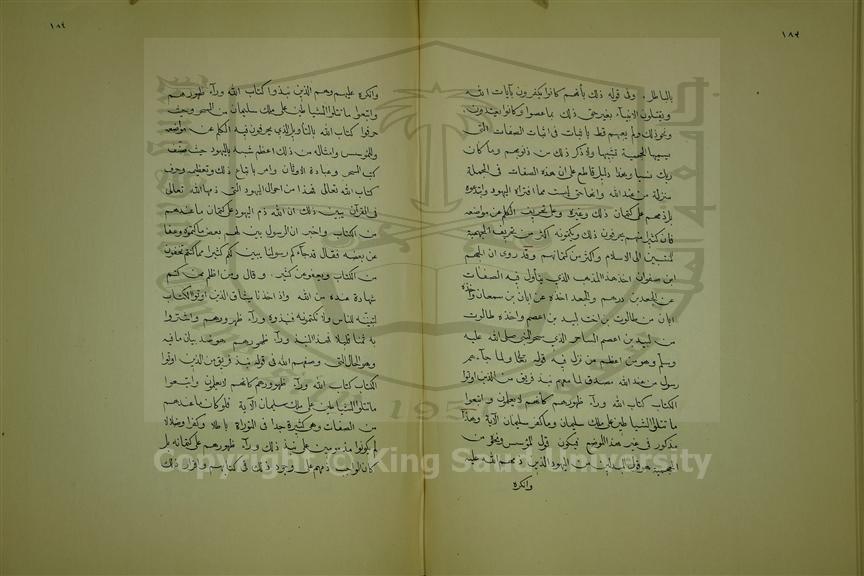 ١٨٣
بالباطل. وفي قوله ذلك بأنهم كانوا يكفرون بآيات الله
ويقتلون الأنبياء بغير حق ذلك بما عصوا وكانوا يعتدون.
ونحو ذلك ولم يعبهم قط باثبات في اثبات الصفات التي
يسميها الجهمية تشبيها ولا ذكر ذلك من ذنوبهم وما كان
ربك نسيا وهذا دليل قاطع على ان هذه الصفات في الجملة
منزلة من عند الله وانها حق ليست مما افتراه اليهود وابتدعوه
بل ذمهم على كتمان ذلك وغيره وعلى تحريف الكلم عن مواضعه
فان كثيرا منهم يحرفون ذلك ويكتمونه اكثر من تحريف الجهمية
المنتسبين الى الاسلام واكثر من كتمانهم وقد روى ان الجهم
ابن صفوان اخذ هذا المذهب الذي يتأول فيه الصفات
عن الجعد بن درهم والجعد اخذه عن ابان بن سمعان واخذه
ابان من طالوت بن اخت لبيد بن اعصم واخذه طالوت
من لبيد بن اعصم الساحر الذي سحر النبي صلى الله عليه
وسلم وهو من اعظم من نزل فيه قوله تعالى ولما جاءهم
رسول من عند الله مصدق لما معهم نبذ فريق من الذين اوتوا
الكتاب كتاب الله وراء ظهورهم كأنهم لا يعلمون واتبعوا
ما تتلوا الشياطين على ملك سليمان وما كفر سليمان الآية وهذا
مذكور في غير هذا الموضع فيكون قول المؤسس ونحوه من
الجهمية هو قول المبدلين من اليهود الذين ذمهم الله عليه
وانكره
١٨٤
وانكره عليهم وهم الذين نبذوا كتاب الله وراء ظهورهم
واتبعوا ما تتلوا الشياطين على ملك سليمان من السحر وحيث
حرفوا كتاب الله بالتأويل الذي يحرفون فيه الكلم عن مواضعه
وللمؤسس وامثاله من ذلك اعظم شبه باليهود حيث صنف
كتب السحر وعبادة الاوثان وامر باتباع ذلك وتعظيمه وحرف
كتاب الله تعالى فهذا من احوال اليهود التي ذمها الله تعالى
في القرآن يبين ذلك ان الله ذم اليهود على كتمان ما عندهم
من الكتاب واخبر ان الرسول بين لهم بعض ما كتموه وعفا
عن بعضه فقال قد جاءكم رسولنا يبين لكم كثيرا مما كنتم تخفون
من الكتاب ويعفو عن كثير. وقال ومن اظلم ممن كتم
شهادة عنده من الله واذ اخذنا ميثاق الذين اوتوا الكتاب
لتبيننه للناس ولا تكتمونه فنبذوه وراء ظهورهم واشتروا
به ثمنا قليلا فهذا النبذ وراء ظهورهم هو ضد بيان ما فيه
وهو الحال التي وصفهم الله في قوله نبذ فريق من الذين اوتوا
الكتاب كتاب الله وراء ظهورهم كأنهم لا يعلمون واتبعوا
ما تتلوا الشياطين على ملك سليمان الآية فلو كان ما عندهم
من الصفات وهو كثيرة جدا في التوراة باطلا وكفرا وضلالا
لم يكونوا مذمومين على نبذ ذلك وراء ظهورهم على كتمانه بل
كان الواجب ذمهم على وجود ذلك في كتابهم واقرار ذلك
1957
Copyright © King Saud University